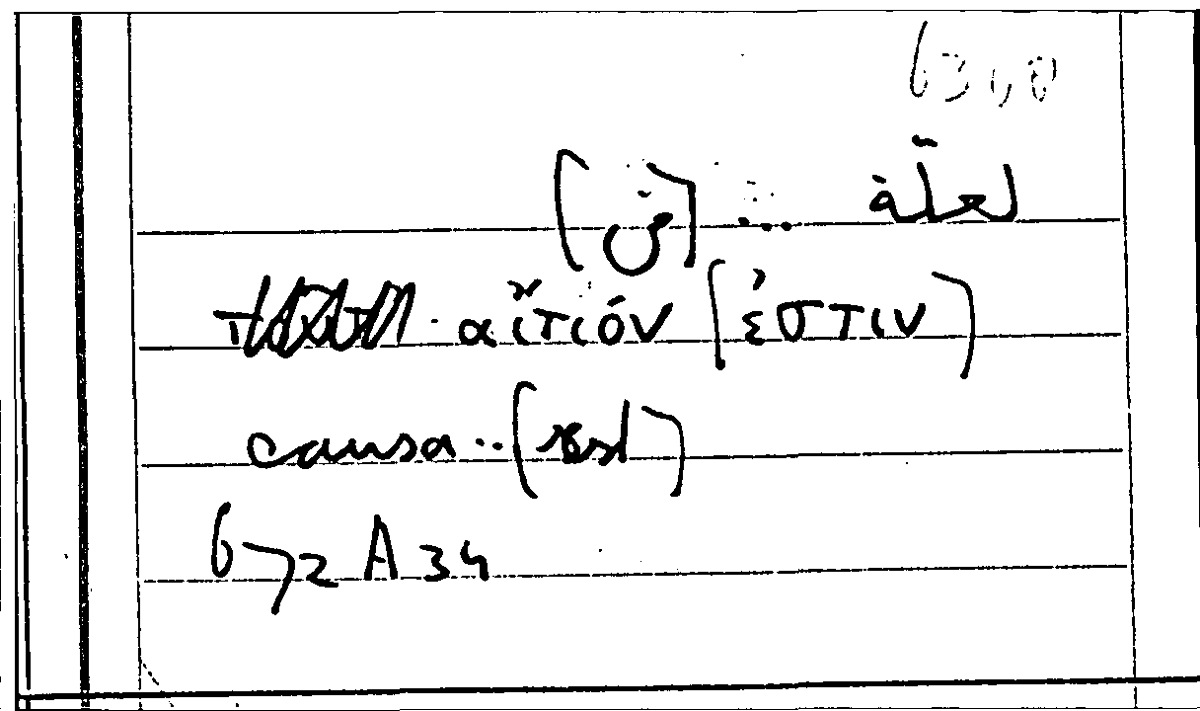 63,8
لعلّة ... (في)
αἴτιόν (ἐστιν)
causa ... (est)
672 A 34